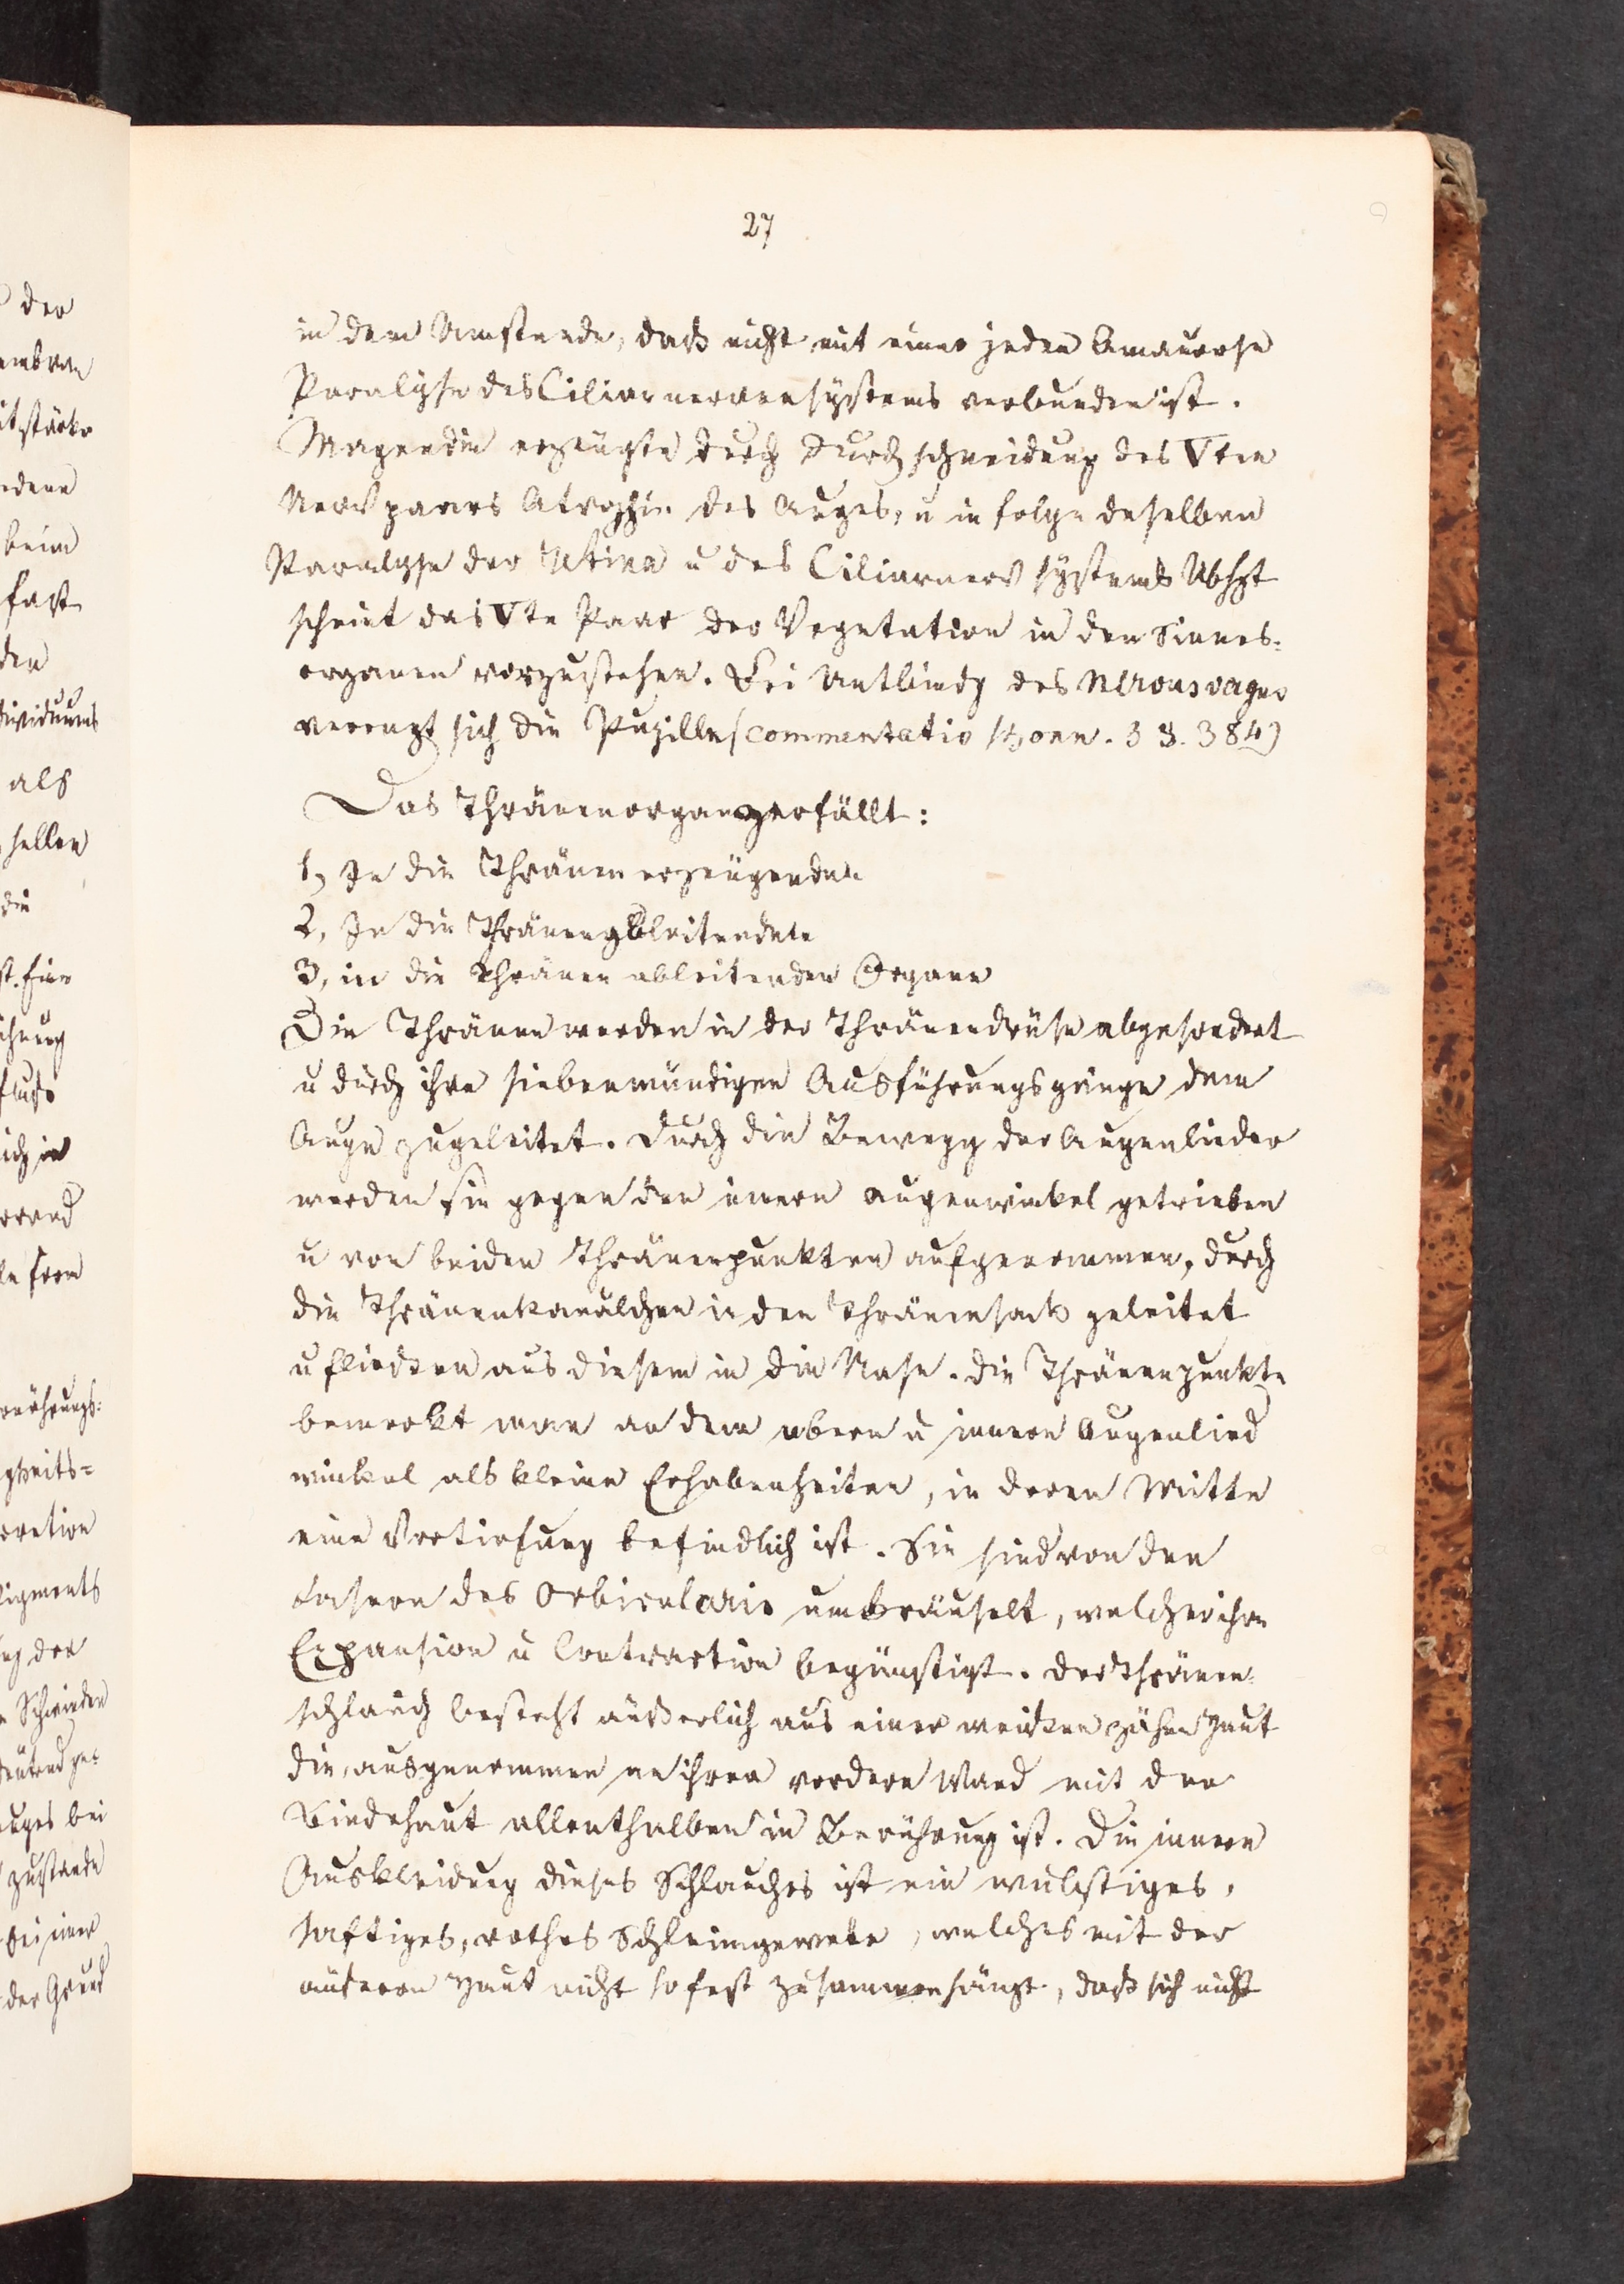 27
in dem Umstande, daß nicht mit einer jeden Amaurose
Paralyse des Ciliarnervensystems verbunden ist.
Magendie erzeugte durch Durchschneidung des Vten
Nervpaares Atrophie des Auges, u in folge deselben
Paralyse der Retina u des Ciliarnerv systems
scheint das Vte Paar der Vegetation in den Sinnes-
organen vorzustehen. Bei des Nervus vagus
verengt sich die Pupille (commentatio 384)
Das Thränenorgan zerfällt:
1, In die Thränen erzeugenden
2, In die Thränen leitenden
3, in die Thränen ableitenden Organe
Die Thränen werden in der Thränendrüse abgesondert
u durch ihre siebenmündigen Ausführungsgänge dem
Auge zugeleitet. Durch die Bewegg der Augenlieder
werden sie gegen den innern augenwinkel getrieben
u von beiden Thränenpunkten aufgenommen, durch
die Thränenkanälchen in den Thränensack geleitet
u fließen aus diesem in die Nase. die Thränenpunkte
bemerkt man an dem obern u innern Augenlied
winkel als kleine Erhabenheiten, in deren Mitte
eine Vertiefung befindlich ist. Sie sind von den
Fasern des Orbicularis umkräuselt, welcher ihre
Expansion u Contraction begünstigt. der Thränen-
schlauch besteht äußerlich aus einer weißen zähen Haut
die, ausgenommen an ihrer vordern Wand mit der
Bindehaut allenthalben in Berührung ist. Die innere
Auskleidung dieses Schlauches ist ein wulstiges,
saftiges, rothes Schleimgewebe, welches mit der
äußeren Haut nicht so fest zusammenhängt, daß sich nicht